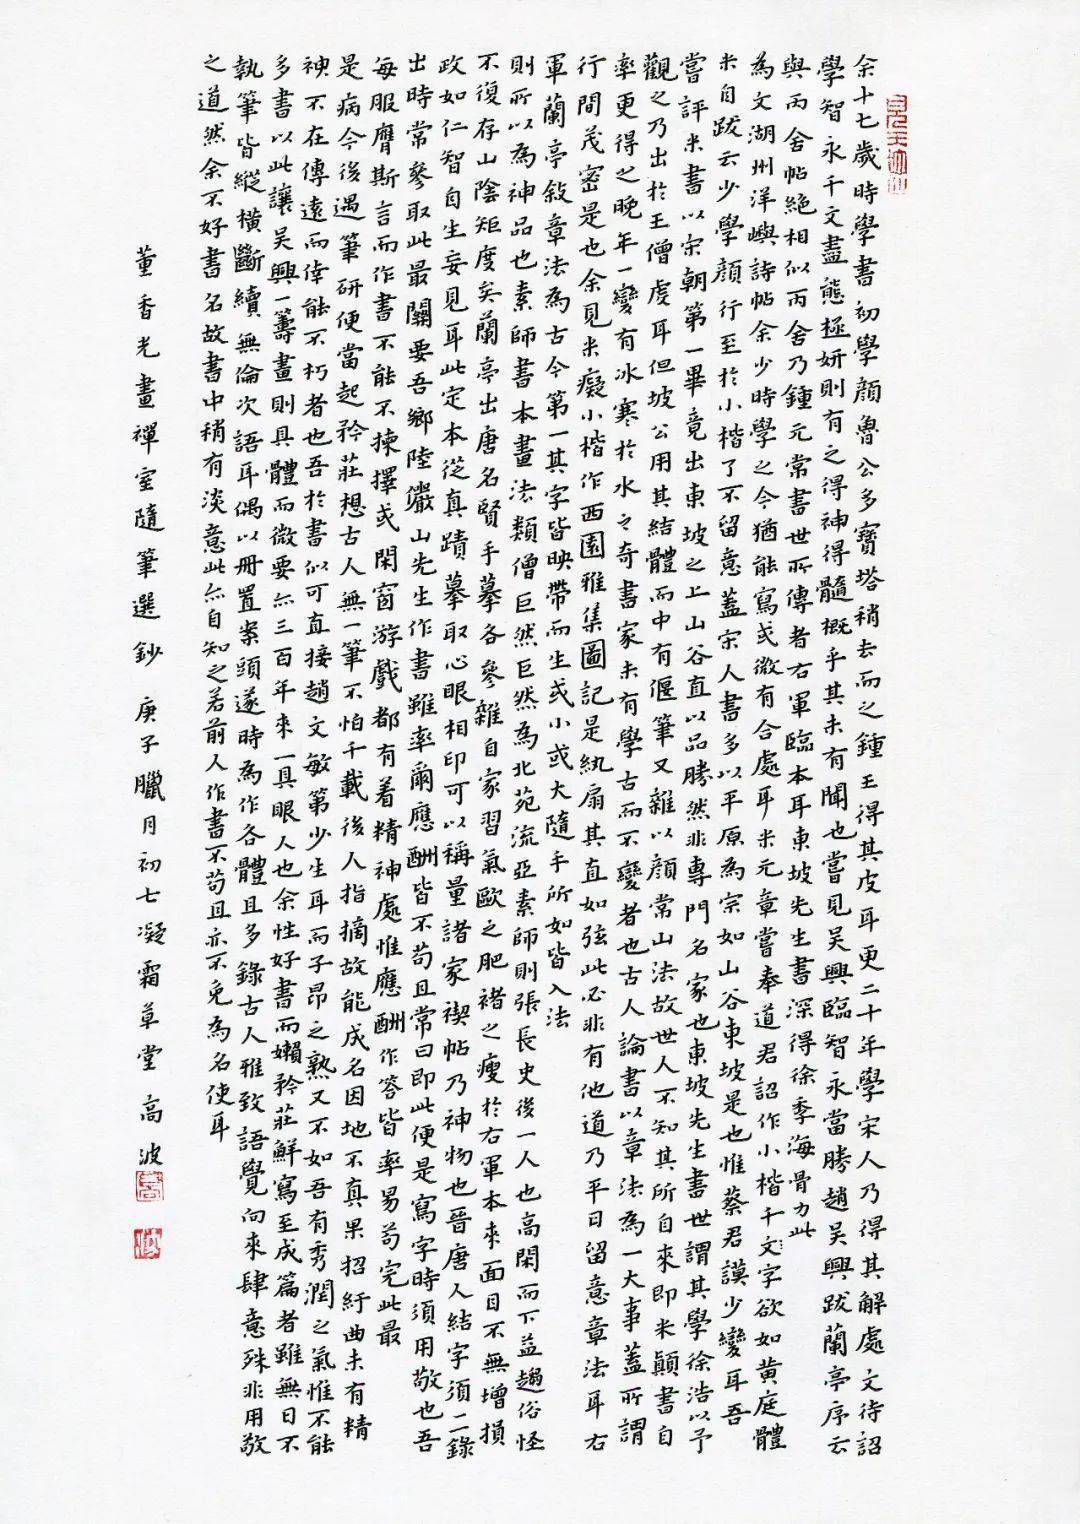 余十七歲時學書初學顔魯公多寶塔稍去而之鍾王得其皮耳更二十年學宋人乃得其解處文待詔
學智永千文盡態極妍則有之得神得髓概乎其未有聞也嘗見吴興臨智永當勝趙吴興跋蘭亭序云
與丙舍帖絶相似丙舍乃鍾元常書世所傳者右軍臨本耳東坡先生書深得徐季海骨力此
為文湖州洋嶼詩帖余少時學之今猶能寫或微有合處耳米元章嘗奉道君詔作小楷千文字欲如黄庭體
米自跋云少學顔行至於小楷了不留意蓋宋人書多以平原為宗如山谷東坡是也惟蔡君謨少變耳吾
嘗評米書以宋朝第一畢竟出東坡之上山谷直以品勝然非專門名家也東坡先生書世謂其學徐浩以予
觀之乃出於王僧虔耳但坡公用其結體而中有偃筆又雜以顔常山法故世人不知其所自來即米顛書自
率更得之晚年一變有冰寒於水之奇書家未有學古而不變者也古人論書以章法為一大事蓋所謂
行間茂密是也余見米癡小楷作西園雅集圖記是紈扇其直如弦此必非有他道乃平日留意章法耳右
軍蘭亭敍章法為古今第一其字皆映帶而生或小或大隨手所如皆入法
則所以為神品也素師書本畫法類僧巨然巨然為北苑流亞素師則張長史後一人也高閑而下益趨俗怪
不復存山陰矩度矣蘭亭出唐名賢手摹各參雜自家習氣歐之肥褚之瘦於右軍本來面目不無增損
政如仁智自生妄見耳此定本從真蹟摹取心眼相印可以稱量諸家禊帖乃神物也晉唐人結字須一一錄
出時常參取此最關要吾鄉陸儼山先生作書雖率爾應酬皆不苟且常曰即此便是寫字時須用敬也吾
每服膺斯言而作書不能不揀擇或閑窗游戲都有着精神處惟應酬作答皆率易苟完此最
是病今後遇筆研便當起矜莊想古人無一筆不怕千載後人指摘故能成名因地不真果招紆曲未有精
神不在傳遠而倖能不朽者也吾於書似可直接趙文敏第少生耳而子昂之熟又不如吾有秀潤之氣惟不能
多書以此讓吴興一籌畫則具體而微要亦三百年來一具眼人也余性好書而嬾矜莊鮮寫至成篇者雖無日不
執筆皆縱橫斷續無倫次語耳偶以冊置案頭遂時為作各體且多錄古人雅致語覺向來肆意殊非用敬
之道然余不好書名故書中稍有淡意此亦自知之若前人作書不苟且亦不免為名使耳
董香光畫禪室隨筆選鈔 庚子臘月初七凝霜草堂 高波